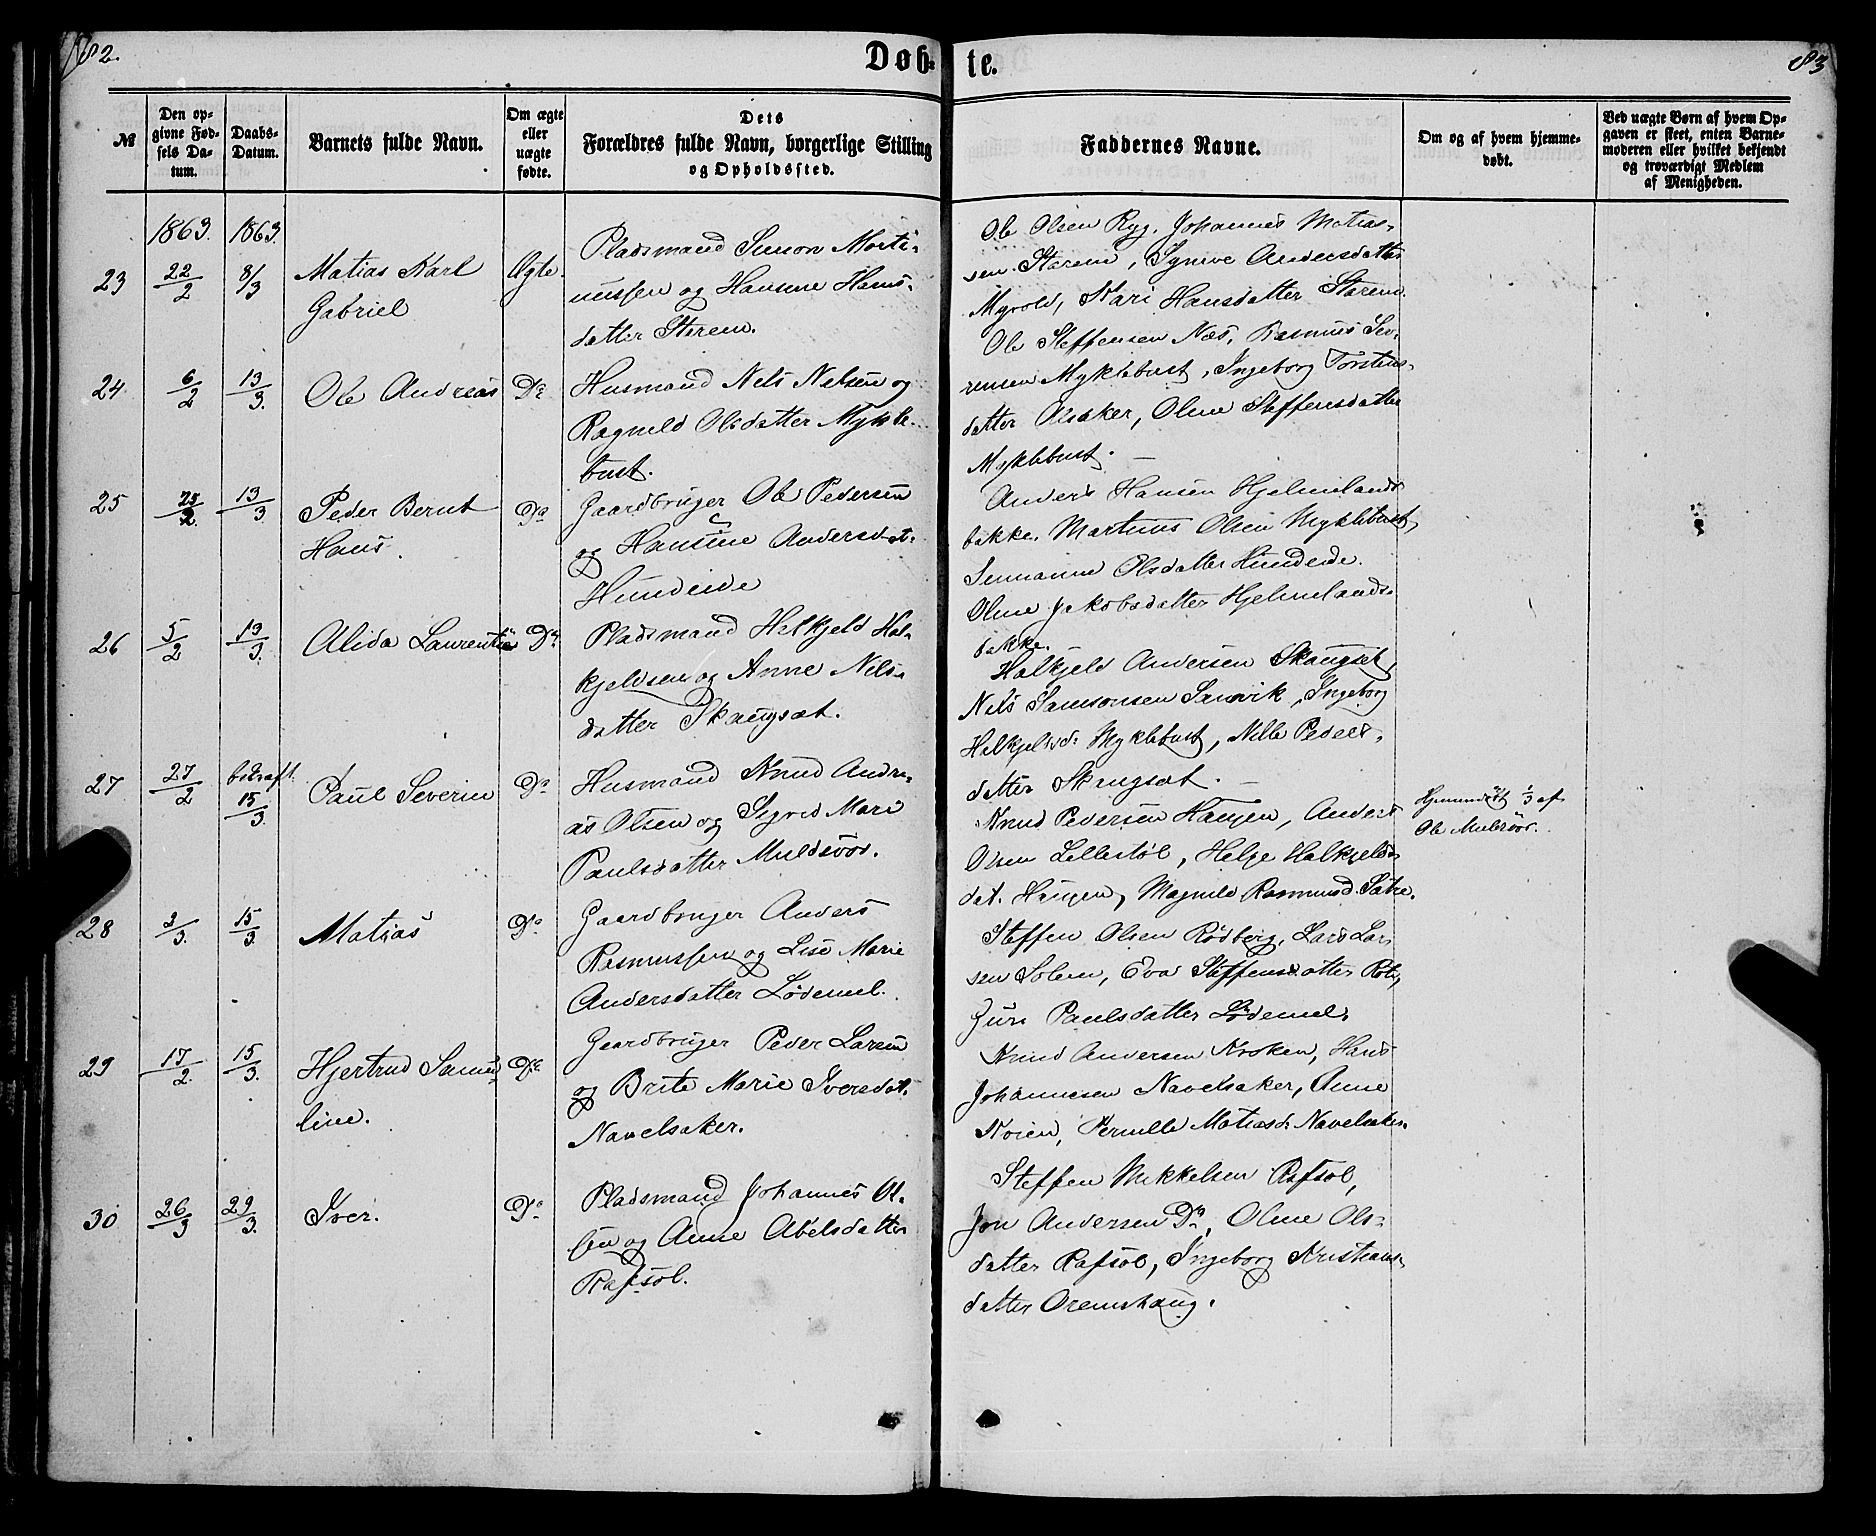 82.
Døb-
te.
83
№
Den op-
givne Fød-
sels Da-
tum.
Daabs-
Datum.
Barnets fulde Navn.
Om ægte
eller
uægte
fødte.
Dets
Forældres fulde Navn, borgerlige Stilling
og Opholdssted.
Faddernes Navne.
Om og af hvem hjemme-
døbt.
Ved uægte Børn af hvem Op-
gaven er skeet, enten Barne-
moderen eller hvilket bekjendt
og troværdigt Medlem
af Menigheden.
1863. 1863.
23 22/2 8/3 Matias Karl
Gabriel
Ægte.
Pladsmand Simon Morti-
nussen og Hansine Hans-
datter Starem.
Ole Olsen Ryg, Johannes Matias-
sen Starem, Synive Andersdatter
Myrold, Kari Hansdatter Starem.
24 6/2 13/3. Ole Andreas Do
Husmand Nels Nelsen og
Ragneld Olsdatter Mykle-
bust.
Ole Steffensen Næs, Rasmus Sev-
rensen Myklebust, Ingeborg Torstens-
datter Aasaker, Oline Steffensdatter
Myklebust. —
25 25/2. 13/3 Peder Bernt
Hans.
Do
Gaardbruger Ole Pedersen
og Hansine Andersdat.
Hundeide
Anders Hansen Hjelmelands-
bakke, Martinus Olsen Myklebust,
Olsdatter Hundeide.
Oline Jakobsdatter Hjelmelands-
bakke.
26 5/2 13/3. Alida Laurentine Do
Pladsmand Helkjeld Hel-
kjeldsen og Anne Nils-
datter Skaugset.
Halkjeld Andersen Skaugset,
Nils Samsonsen Sanvik, Ingeborg
Helkjeldsd. Myklebust, Nille Peders-
datter Skaugset. —
27 27/2 bekræft. 15/3. Paul Severin Do
Husmand Knud Andre-
as Olsen og Sigrid Marie
Paulsdatter Muldsvor.
Knud Pedersen Haugen, Anders
Olsen Lillestøl, Helge Halkjelds-
dat. Haugen, Magnild Rasmusd. Sætre.
Hjemmedøbt 1/3 af
Ole Mulsvor.
28 3/3. 15/3. Matias Do
Gaardbruger Anders
Rasmussen og Lise Marie
Andersdatter Lødemel.
Steffen Olsen Rødberg, Lars Lar-
sen Solem, Eva Steffensdatter Rob,
Guri Paulsdatter Lødemel.
29 17/2. 15/3. Hjertrud Samue-
line.
Do
Gaardbruger Peder Larsen
og Brite Marie Iversdat.
Navelsaker.
Knud Andersen Kroken, Hans
Johannesen Navelsaker, Anne
Koien, Pernille Matiasd. Navelsaker.
30 26/3 29/3. Iver. Do
Pladsmand Johannes Ol-
sen og Anne Abelsdatter
Rafsøl.
Steffen Mikkelsen Rafsøl,
Jon Andersen Do, Oline Ols-
datter Rafsøl, Ingeborg Kristians-
datter Oremshaug.